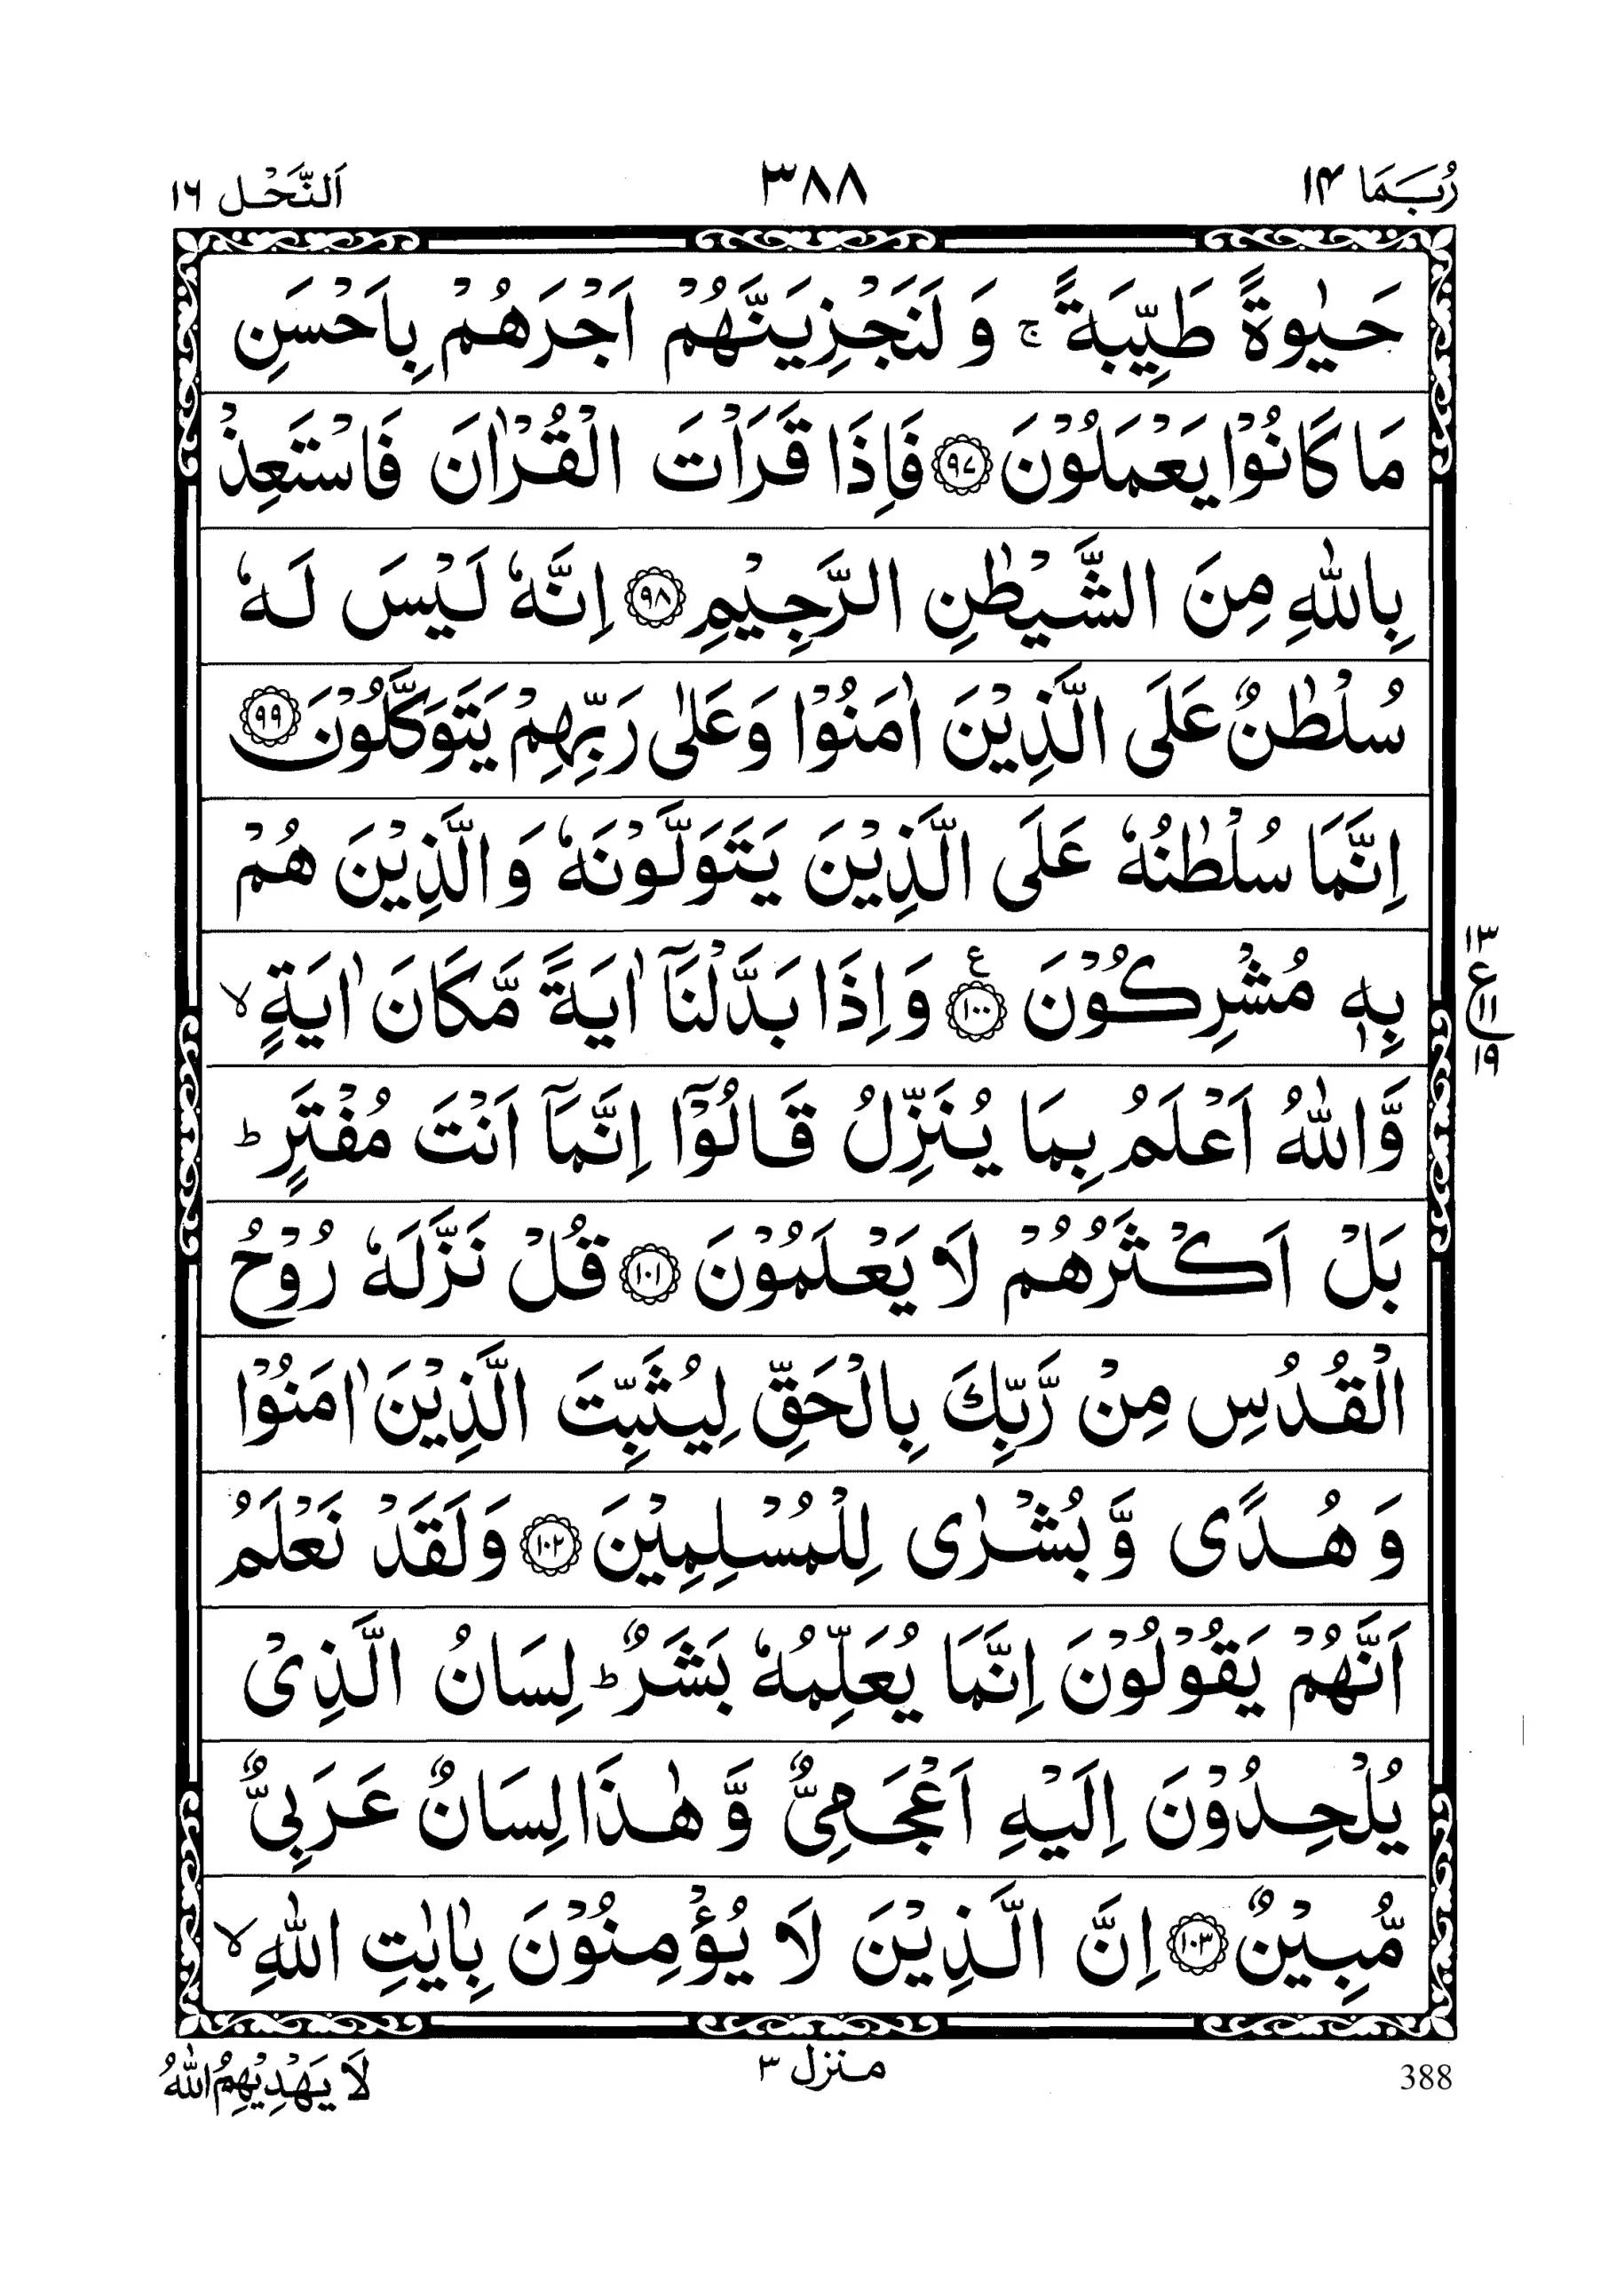 رُبَمَا ١٤
٣٨٨
اَلنَّحْل ١٦
حَيٰوةً طَيِّبَةً ۚ وَ لَنَجْزِيَنَّهُمْ اَجْرَهُمْ بِاَحْسَنِ
مَا كَانُوْا يَعْمَلُوْنَ ﴿٩٧﴾ فَاِذَا قَرَاْتَ الْقُرْاٰنَ فَاسْتَعِذْ
بِاللّٰهِ مِنَ الشَّيْطٰنِ الرَّجِيْمِ ﴿٩٨﴾ اِنَّهٗ لَيْسَ لَهٗ
سُلْطٰنٌ عَلَى الَّذِيْنَ اٰمَنُوْا وَعَلٰى رَبِّهِمْ يَتَوَكَّلُوْنَ ﴿٩٩﴾
اِنَّمَا سُلْطٰنُهٗ عَلَى الَّذِيْنَ يَتَوَلَّوْنَهٗ وَالَّذِيْنَ هُمْ
بِهٖ مُشْرِكُوْنَ ﴿١٠٠﴾ ع وَاِذَا بَدَّلْنَاۤ اٰيَةً مَّكَانَ اٰيَةٍ ۙ
١٣
ع
١١
١٩
وَّاللّٰهُ اَعْلَمُ بِمَا يُنَزِّلُ قَالُوْۤا اِنَّمَاۤ اَنْتَ مُفْتَرٍ ؕ
بَلْ اَكْثَرُهُمْ لَا يَعْلَمُوْنَ ﴿١٠١﴾ قُلْ نَزَّلَهٗ رُوْحُ
الْقُدُسِ مِنْ رَّبِّكَ بِالْحَقِّ لِيُثَبِّتَ الَّذِيْنَ اٰمَنُوْا
وَهُدًى وَّبُشْرٰى لِلْمُسْلِمِيْنَ ﴿١٠٢﴾ وَلَقَدْ نَعْلَمُ
اَنَّهُمْ يَقُوْلُوْنَ اِنَّمَا يُعَلِّمُهٗ بَشَرٌ ؕ لِسَانُ الَّذِىْ
يُلْحِدُوْنَ اِلَيْهِ اَعْجَمِىٌّ وَّهٰذَا لِسَانٌ عَرَبِىٌّ
مُّبِيْنٌ ﴿١٠٣﴾ اِنَّ الَّذِيْنَ لَا يُؤْمِنُوْنَ بِاٰيٰتِ اللّٰهِ ۙ
388
منزل ٣
لَا يَهْدِيْهِمُ اللّٰهُ